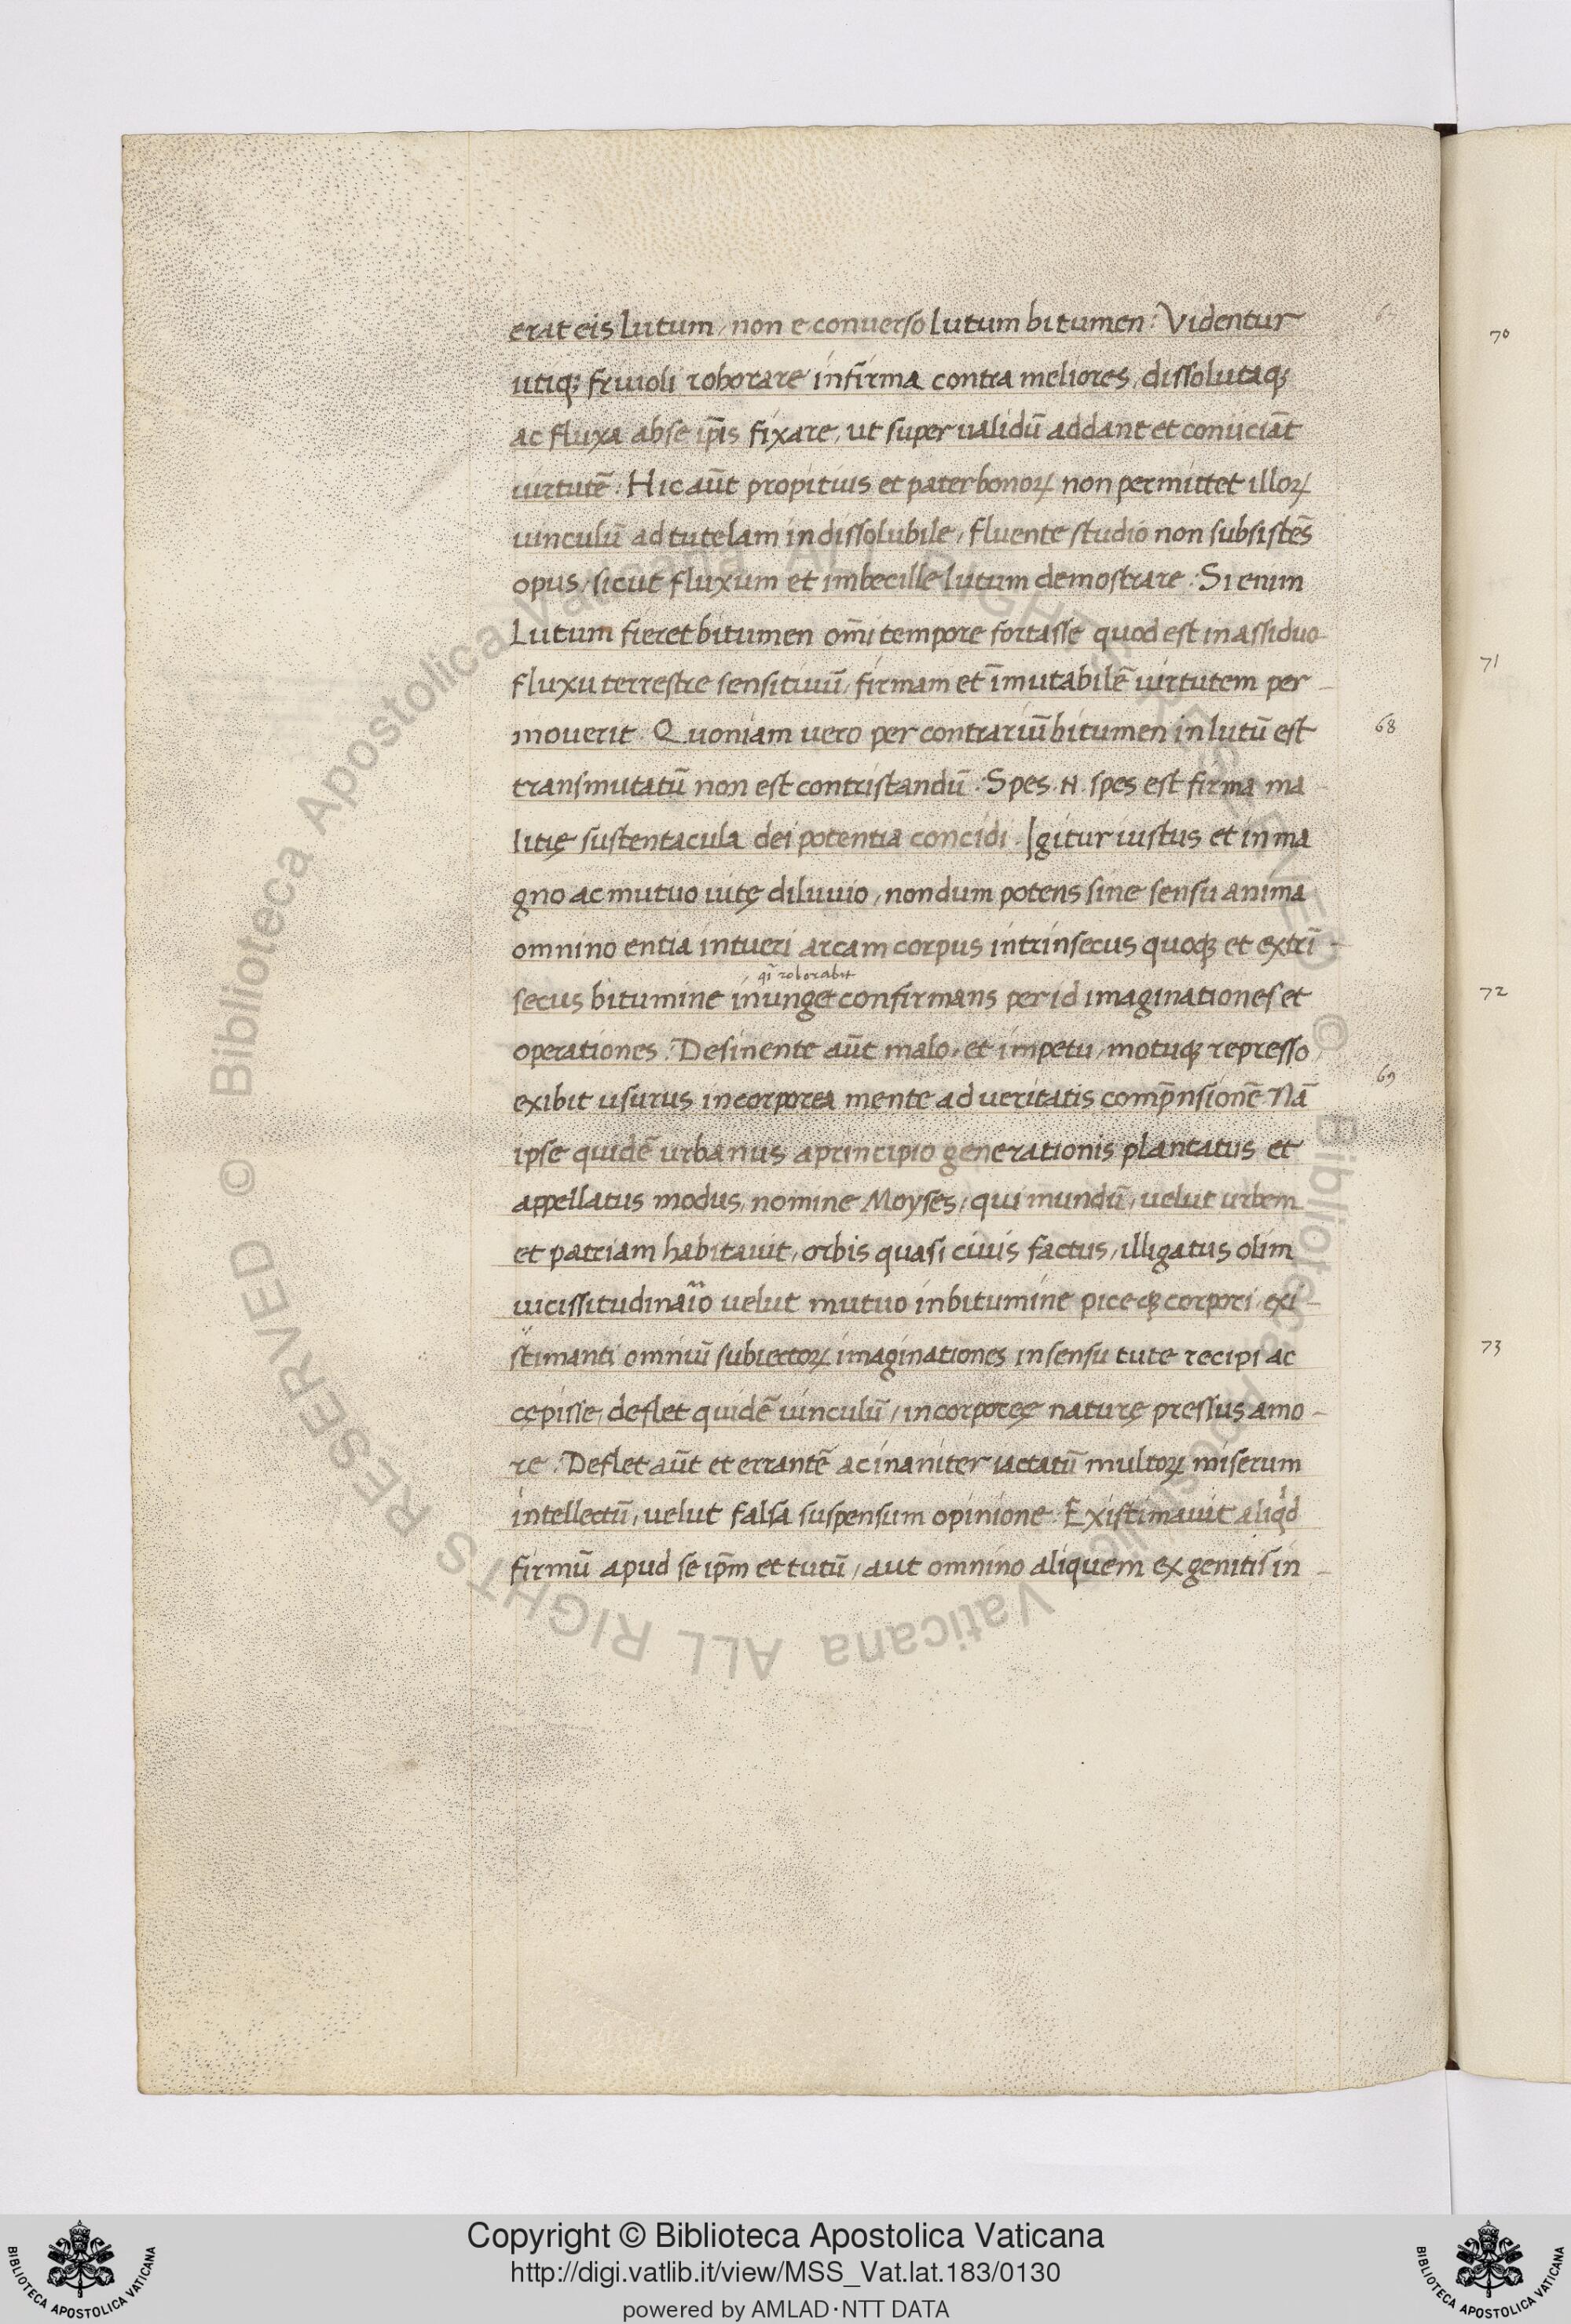 erat eis lutum, non e converso lutum bitumen: Videntur
utiq; frivoli roborare infirma contra meliores, dissolutaq;
ac fluxa ab se ip̄is fixare, ut super validū addant et conijciāt
virtutē: Hic aūt propitius et pater bonoꝝ non permittet illoꝝ
vinculū ad tutelam indissolubile, fluente studio non subsistēs
opus, sicut fluxum et imbecille lutum demostrare: Si enim
Lutum fieret bitumen om̄i tempore fortasse quod est in assiduo
fluxu terrestre sensitivū, firmam et īmutabilē virtutem per-
moverit. Quoniam vero per contrariū bitumen in lutū est
transmutatū non est contristandū: Spes .N. spes est firma ma
litię sustentacula dei potentia concidi. Igitur iustus et in ma
gno ac mutuo vitę diluvio, nondum potens sine sensu anima
omnino entia intueri arcam corpus intrinsecus quoq; et extrī-
roborabit
secus bitumine inunget confirmans per id imaginationes et
operationes: Desinente aūt malo, et impetu, motuq; represso,
exibit usurus incorporea mente ad veritatis comp̄nsionē. Nā
ipse quidē urbanus a principio generationis plantatus et
appellatus modus, nomine Moyses, qui mundū, velut urbem
et patriam habitavit, orbis quasi civis factus, illigatus olim
velut mutuo in bitumine piceq; corpori, exi-
stimanti omniū subiectoꝝ imaginationes in sensu tute recipi ac
cępisse, deflet quidē vinculū, incorporeę naturę pressus amo-
re: Deflet aūt et errantē ac inaniter iactatū multoꝝ miserum
intellectū, velut falsa suspensum opinione. Existimavit aliqd
firmū apud se ip̄m et tutū, aut omnino aliquem ex genitis in-
68
69
70
71
72
73
Copyright © Biblioteca Apostolica Vaticana
http://digi.vatlib.it/view/MSS_Vat.lat.183/0130
powered by AMLAD·NTT DATA
BIBLIOTECA APOSTOLICA VATICANA
BIBLIOTECA APOSTOLICA VATICANA
© Biblioteca Apostolica Vaticana ALL RIGHTS RESERVED © Biblioteca Apostolica Vaticana ALL RIGHTS RESERVED